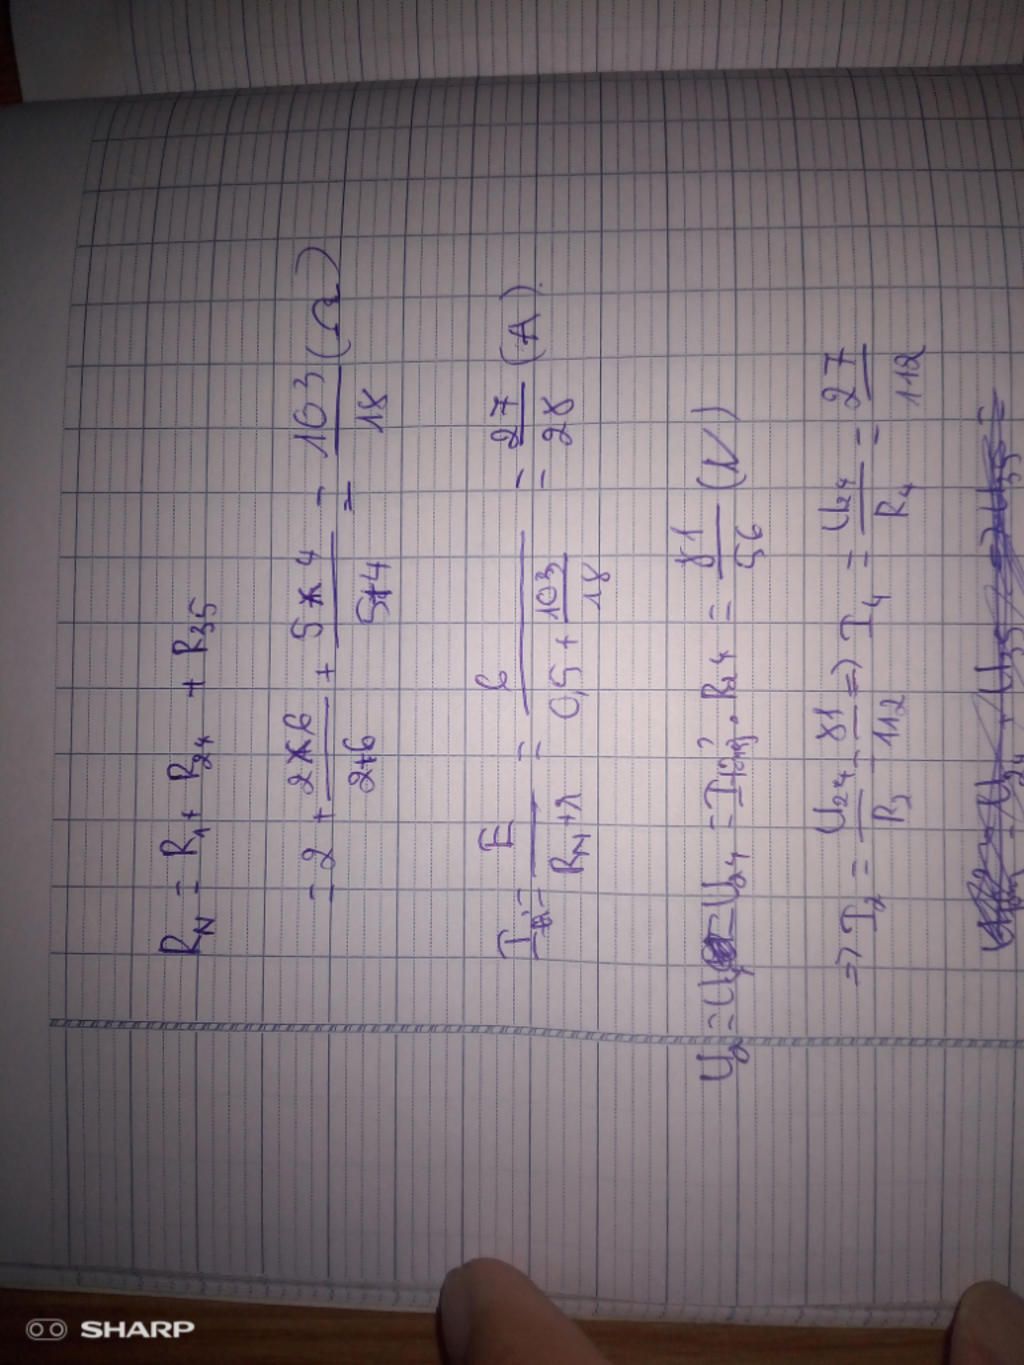 R_N = R_1 + R_24 + R_35
= 2 + \frac{2×6}{2+6} + \frac{5×4}{5+4} = \frac{103}{18} (Ω)
= \frac{E}{R_N + r} = \frac{6}{0,5 + \frac{103}{18}} = \frac{27}{28} (A).
= U_24 = . R_24 = \frac{81}{56} (V)
=> I_2 = \frac{U_24}{R_2} = \frac{81}{112} => I_4 = \frac{U_24}{R_4} = \frac{27}{112}
SHARP